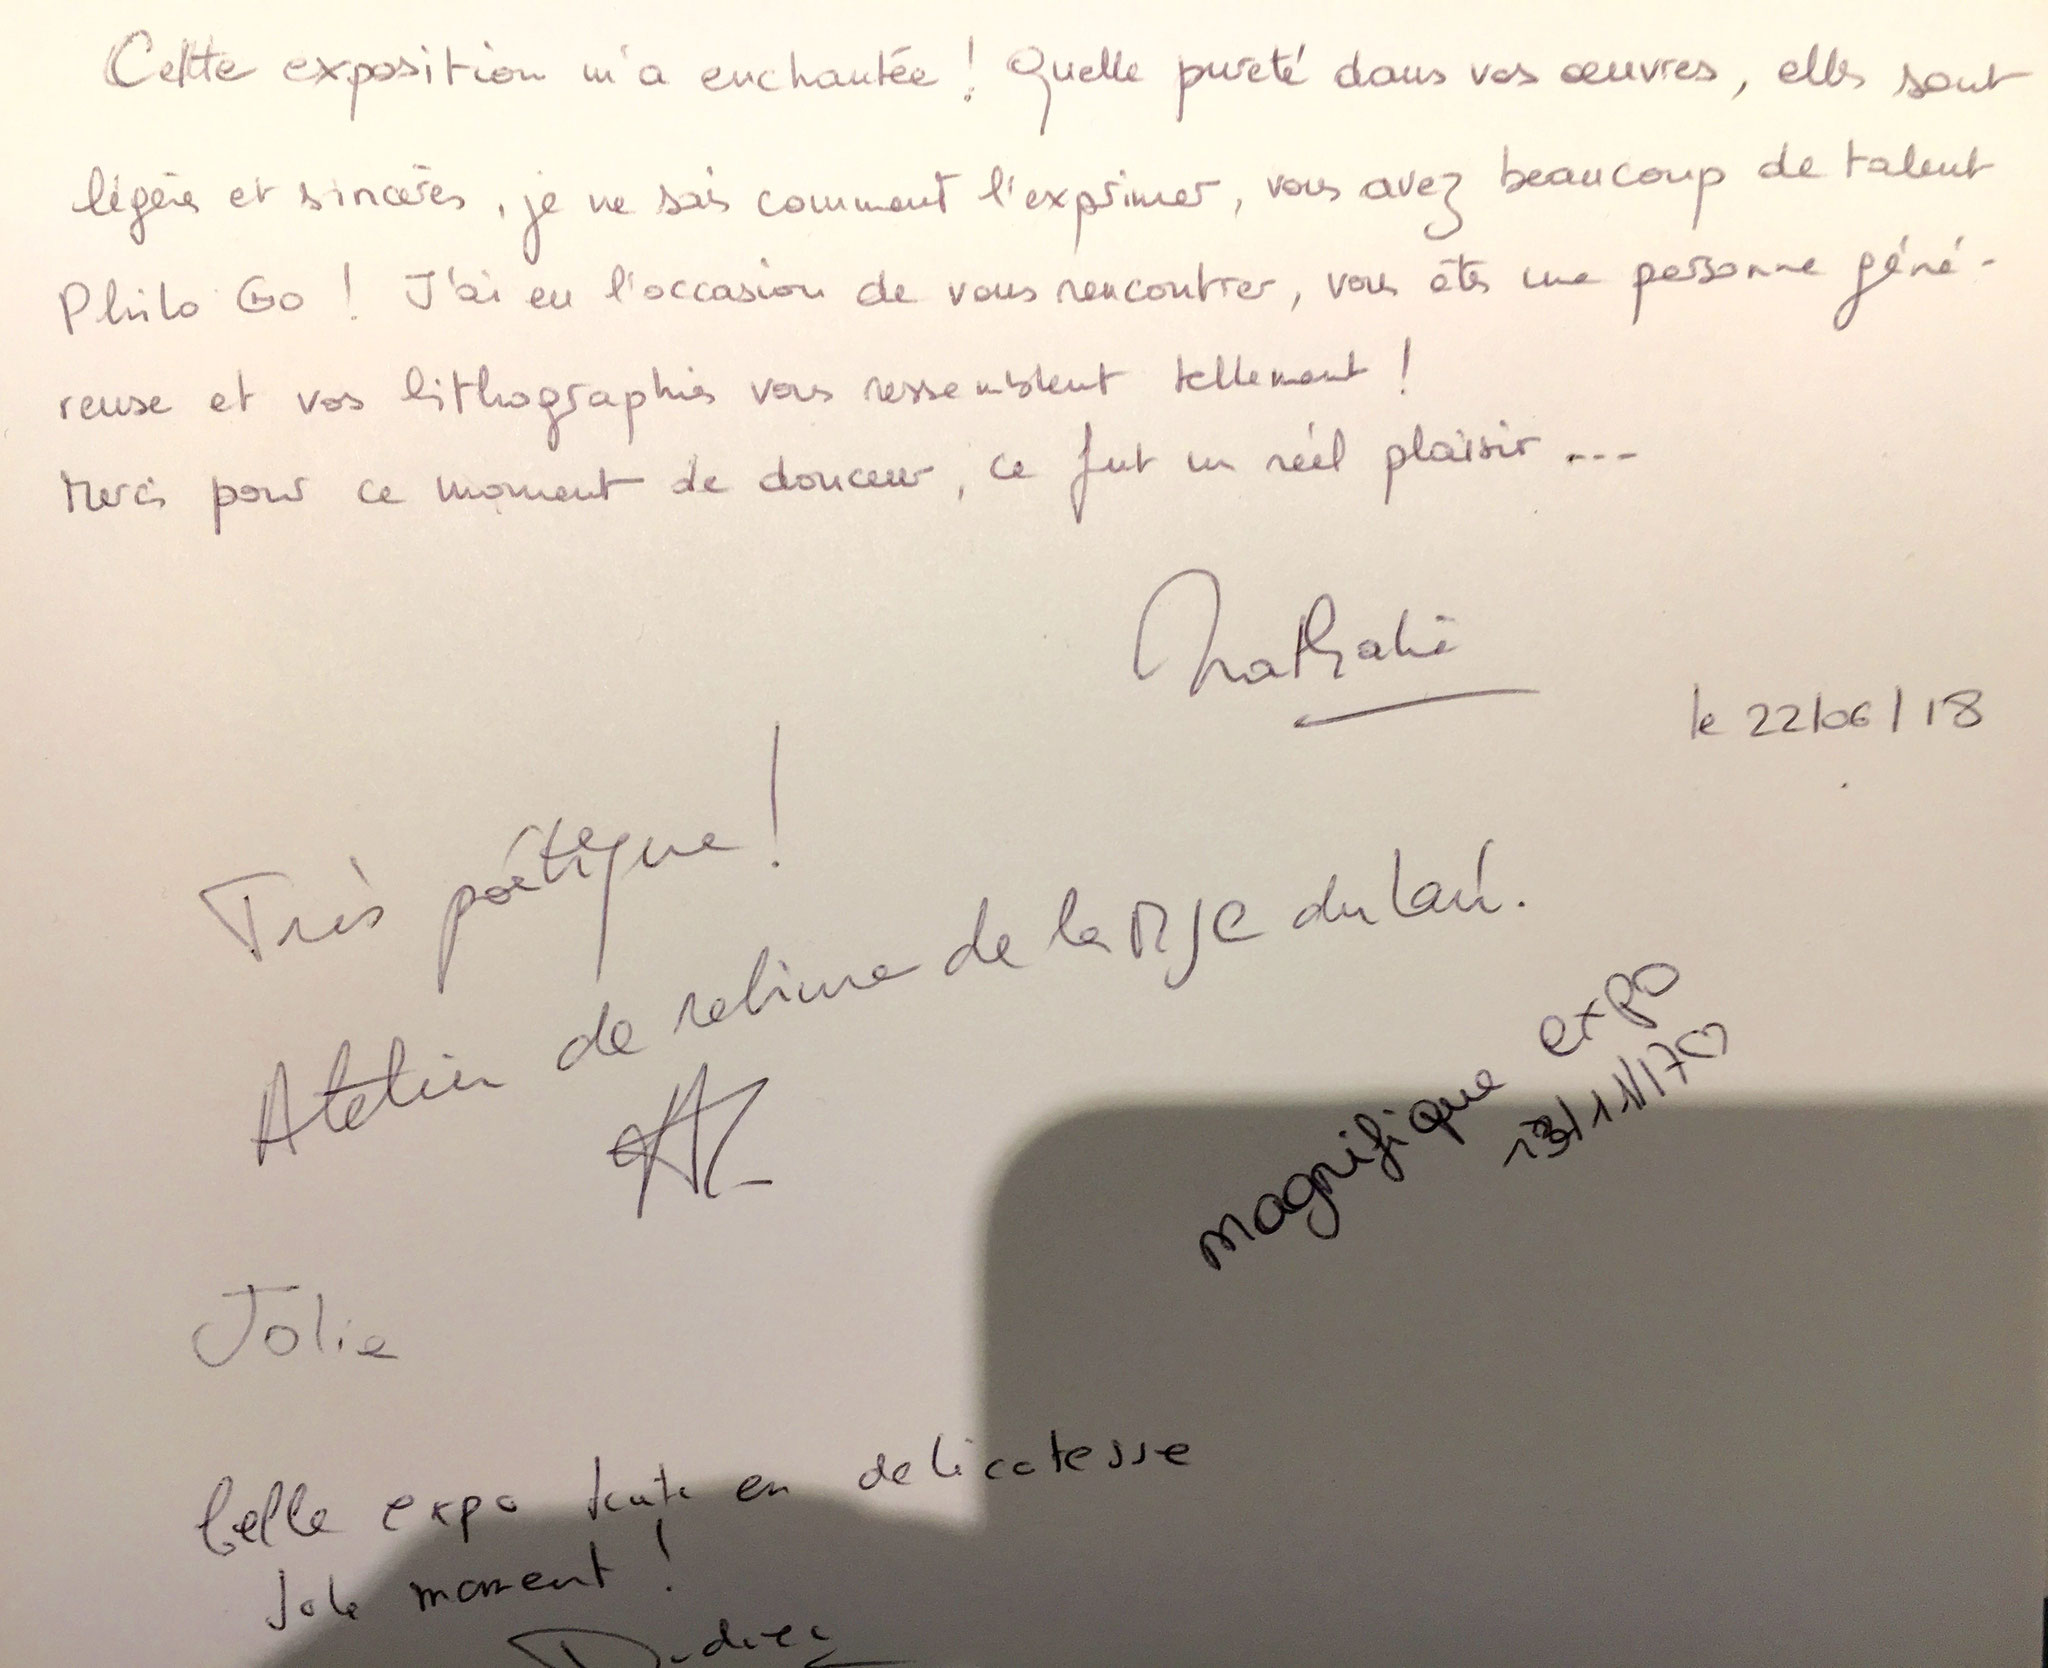 Cette exposition m'a enchantée ! Quelle pureté dans vos œuvres, elles sont
légères et sincères, je ne sais comment l'exprimer, vous avez beaucoup de talent
Philo Go ! J'ai eu l'occasion de vous rencontrer, vous êtes une personne géné-
reuse et vos lithographies vous ressemblent tellement !
Merci pour ce moment de douceur, ce fut un réel plaisir ...
Nathalie
le 22/06/18
Très poétique !
Atelier de reliure de la MJC du Lau.
magnifique expo
13/11/17
Jolie
belle expo toute en delicatesse
Joli moment !